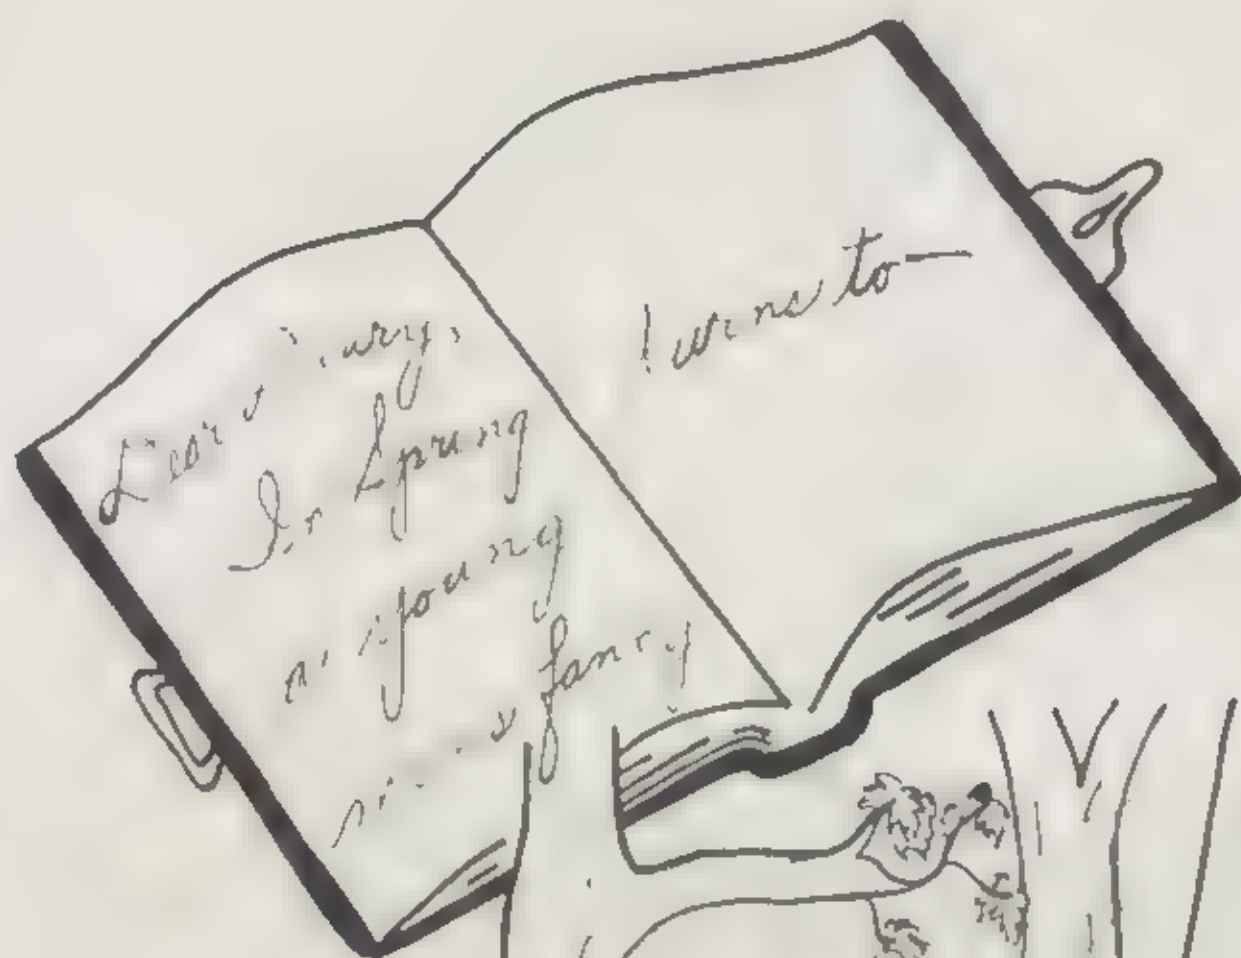 Dear Diary,
In Spring
a young
man's fancy
turns to—